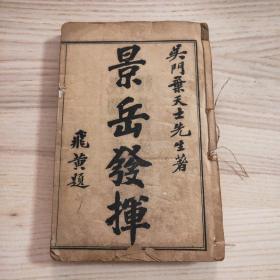 吴門葉天士先生著
景岳發揮
飛黄題